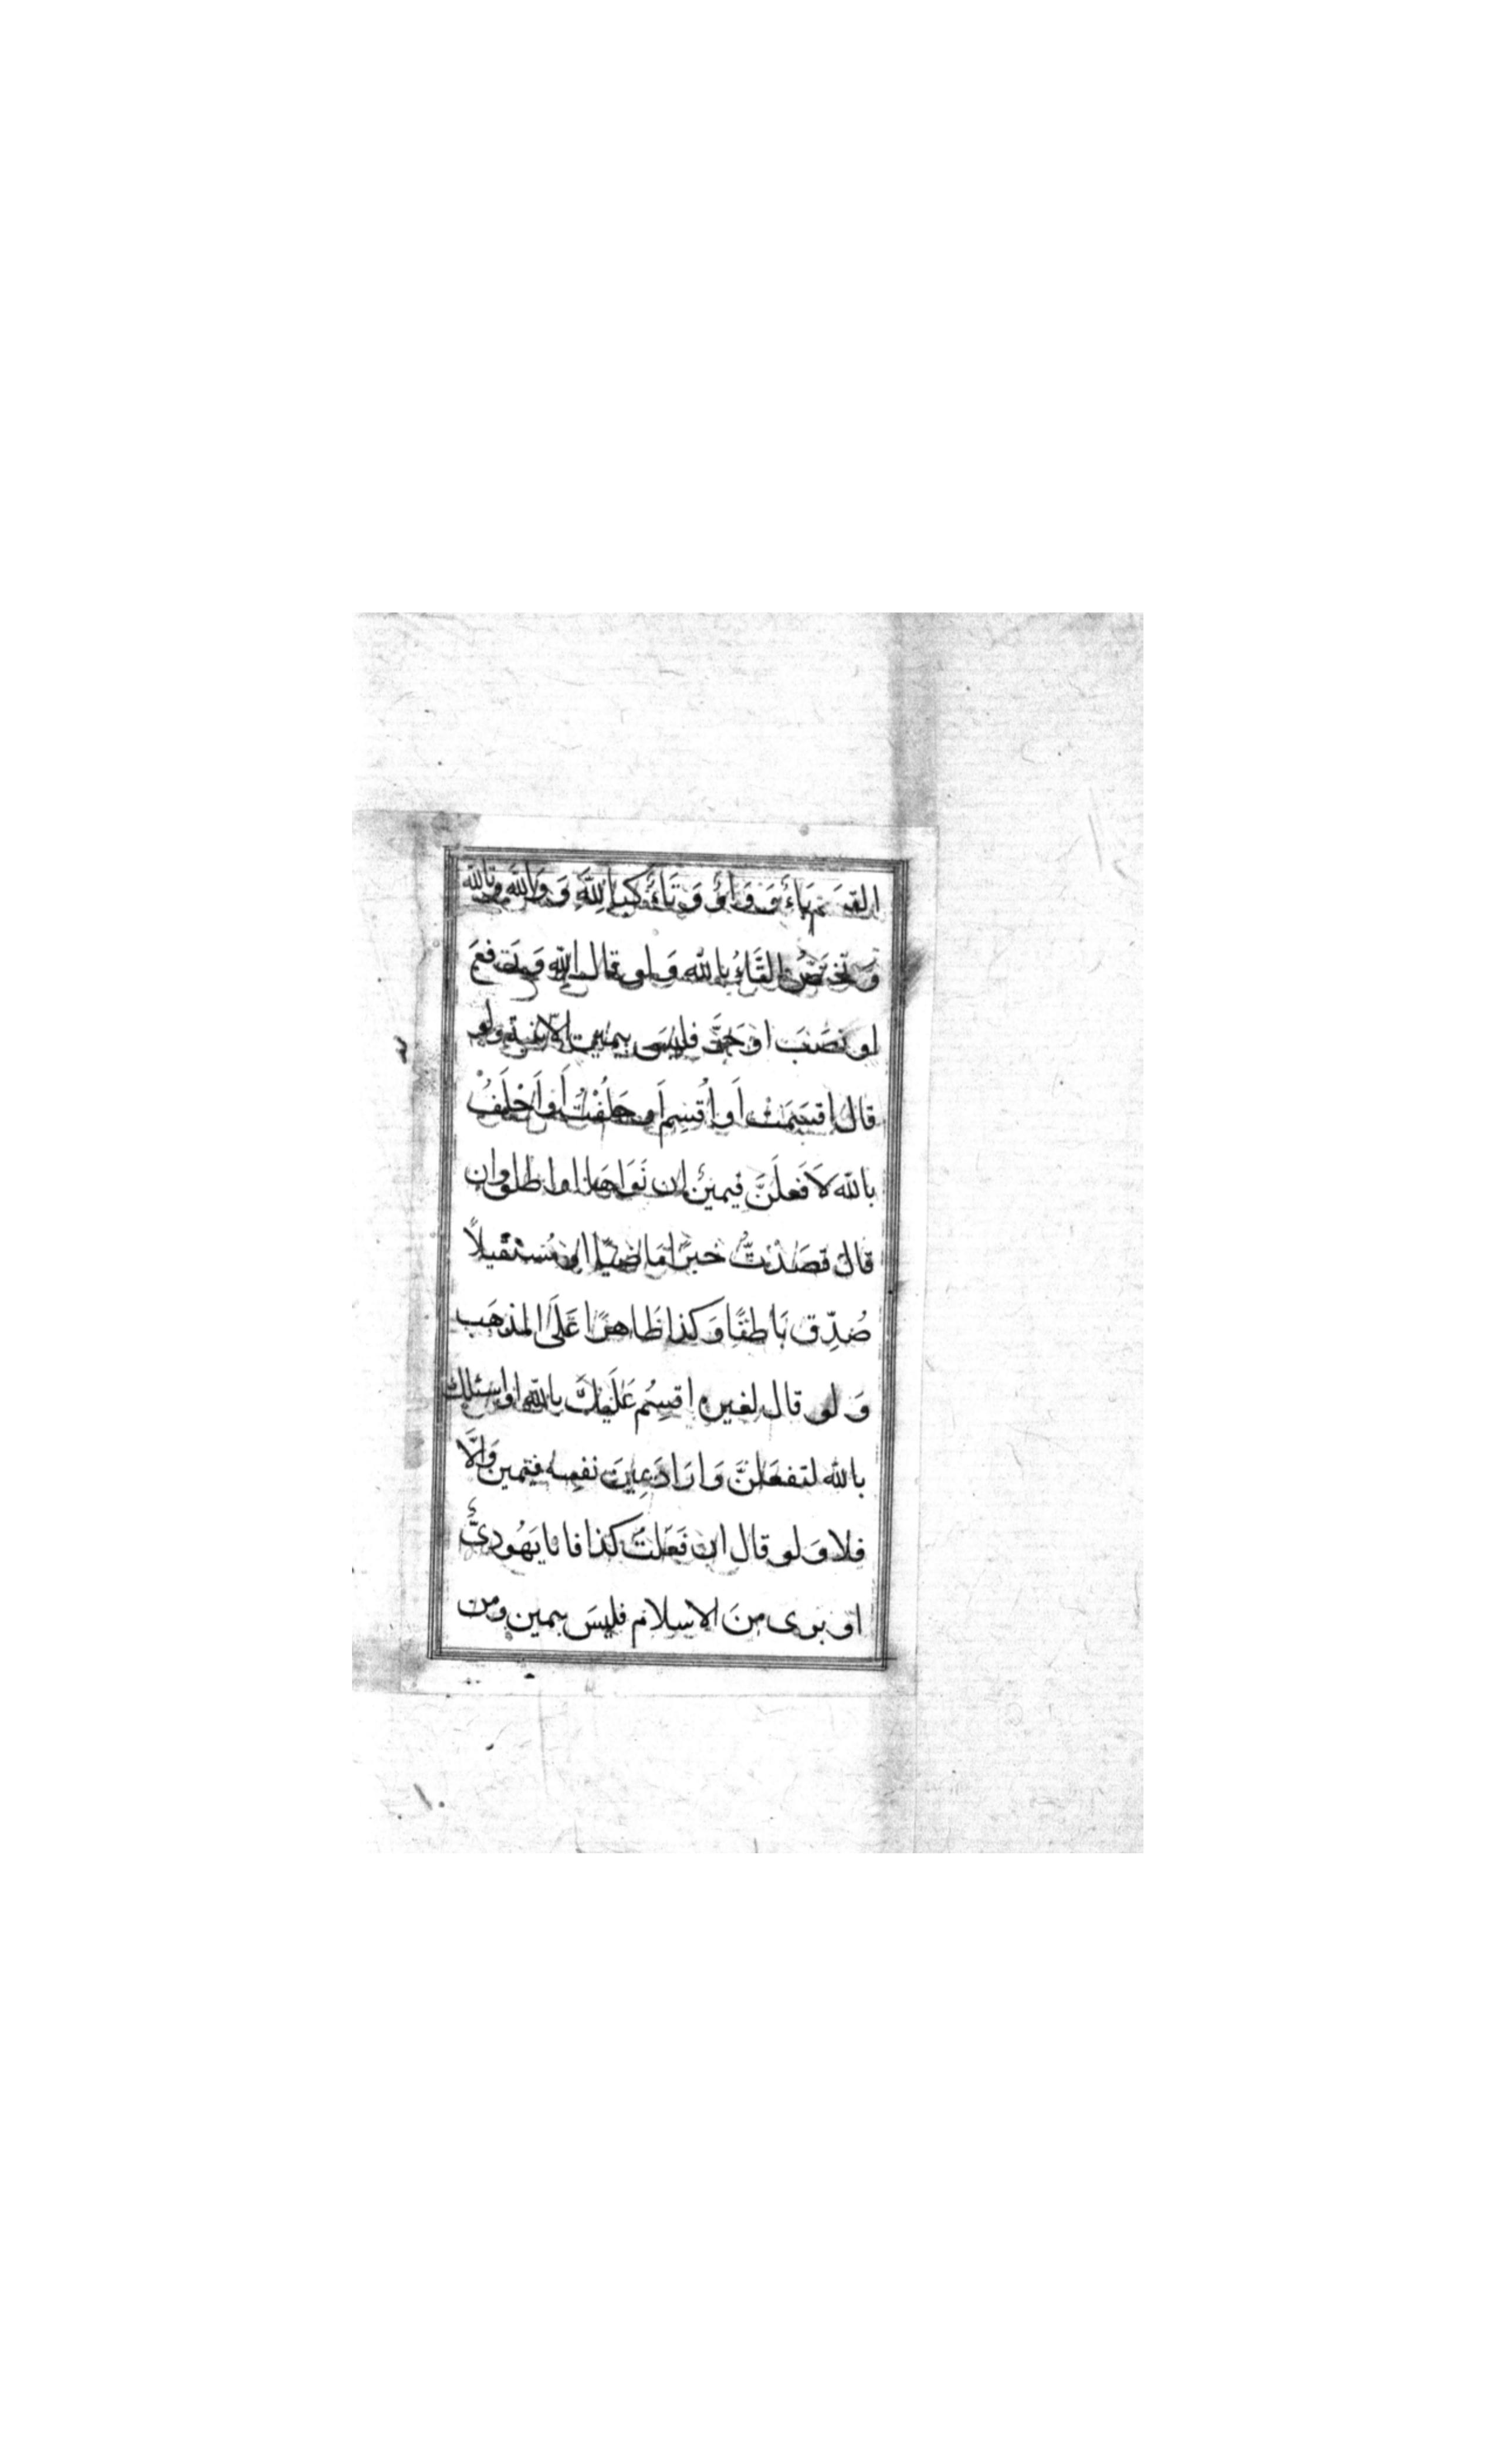 القسم بَاءٌ وَ وَاوٌ وَ تَاءٌ كبِاللهِ وَ وَاللهِ وتالله
وَ تَختَصُّ التَّاءُ بالله وَ لو قال الله وَ رَفعَ
لو نصَبَ او جَرَّ فليسَ بيمين الا بنية ولو
قال اقسَمَتُ اَو اُقسِم اَو حَلَفْتُ اَو اَحْلِفُ
بالله لاَفعلَنَّ فيمينٌ ان نَوَاهَا او اطلق وان
قال قصَدْتُ خبرًا مَاضيًا او مُستَقبلاً
صُدِّق بَاطنًا وَ كذا ظَاهرًا عَلَى المذهَب
وَ لو قال لغيره اقسِمُ عَلَيْكَ بالله او اسئلك
بالله لتفعَلَنَّ وَ ارَادَ يمِينَ نفسِه فيَمين وَاِلَّا
فلا وَ لو قال ان فَعَلتُ كذا فانا يَهُودِيٌّ
او برى مِنَ الاسلام فليسَ بيمين ومن